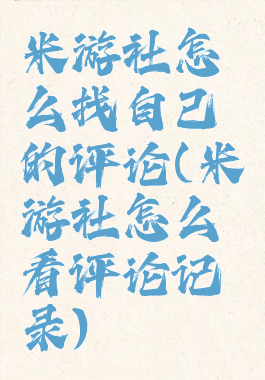 米游社怎
么找自己
的评论(米
游社怎么
看评论记
录)